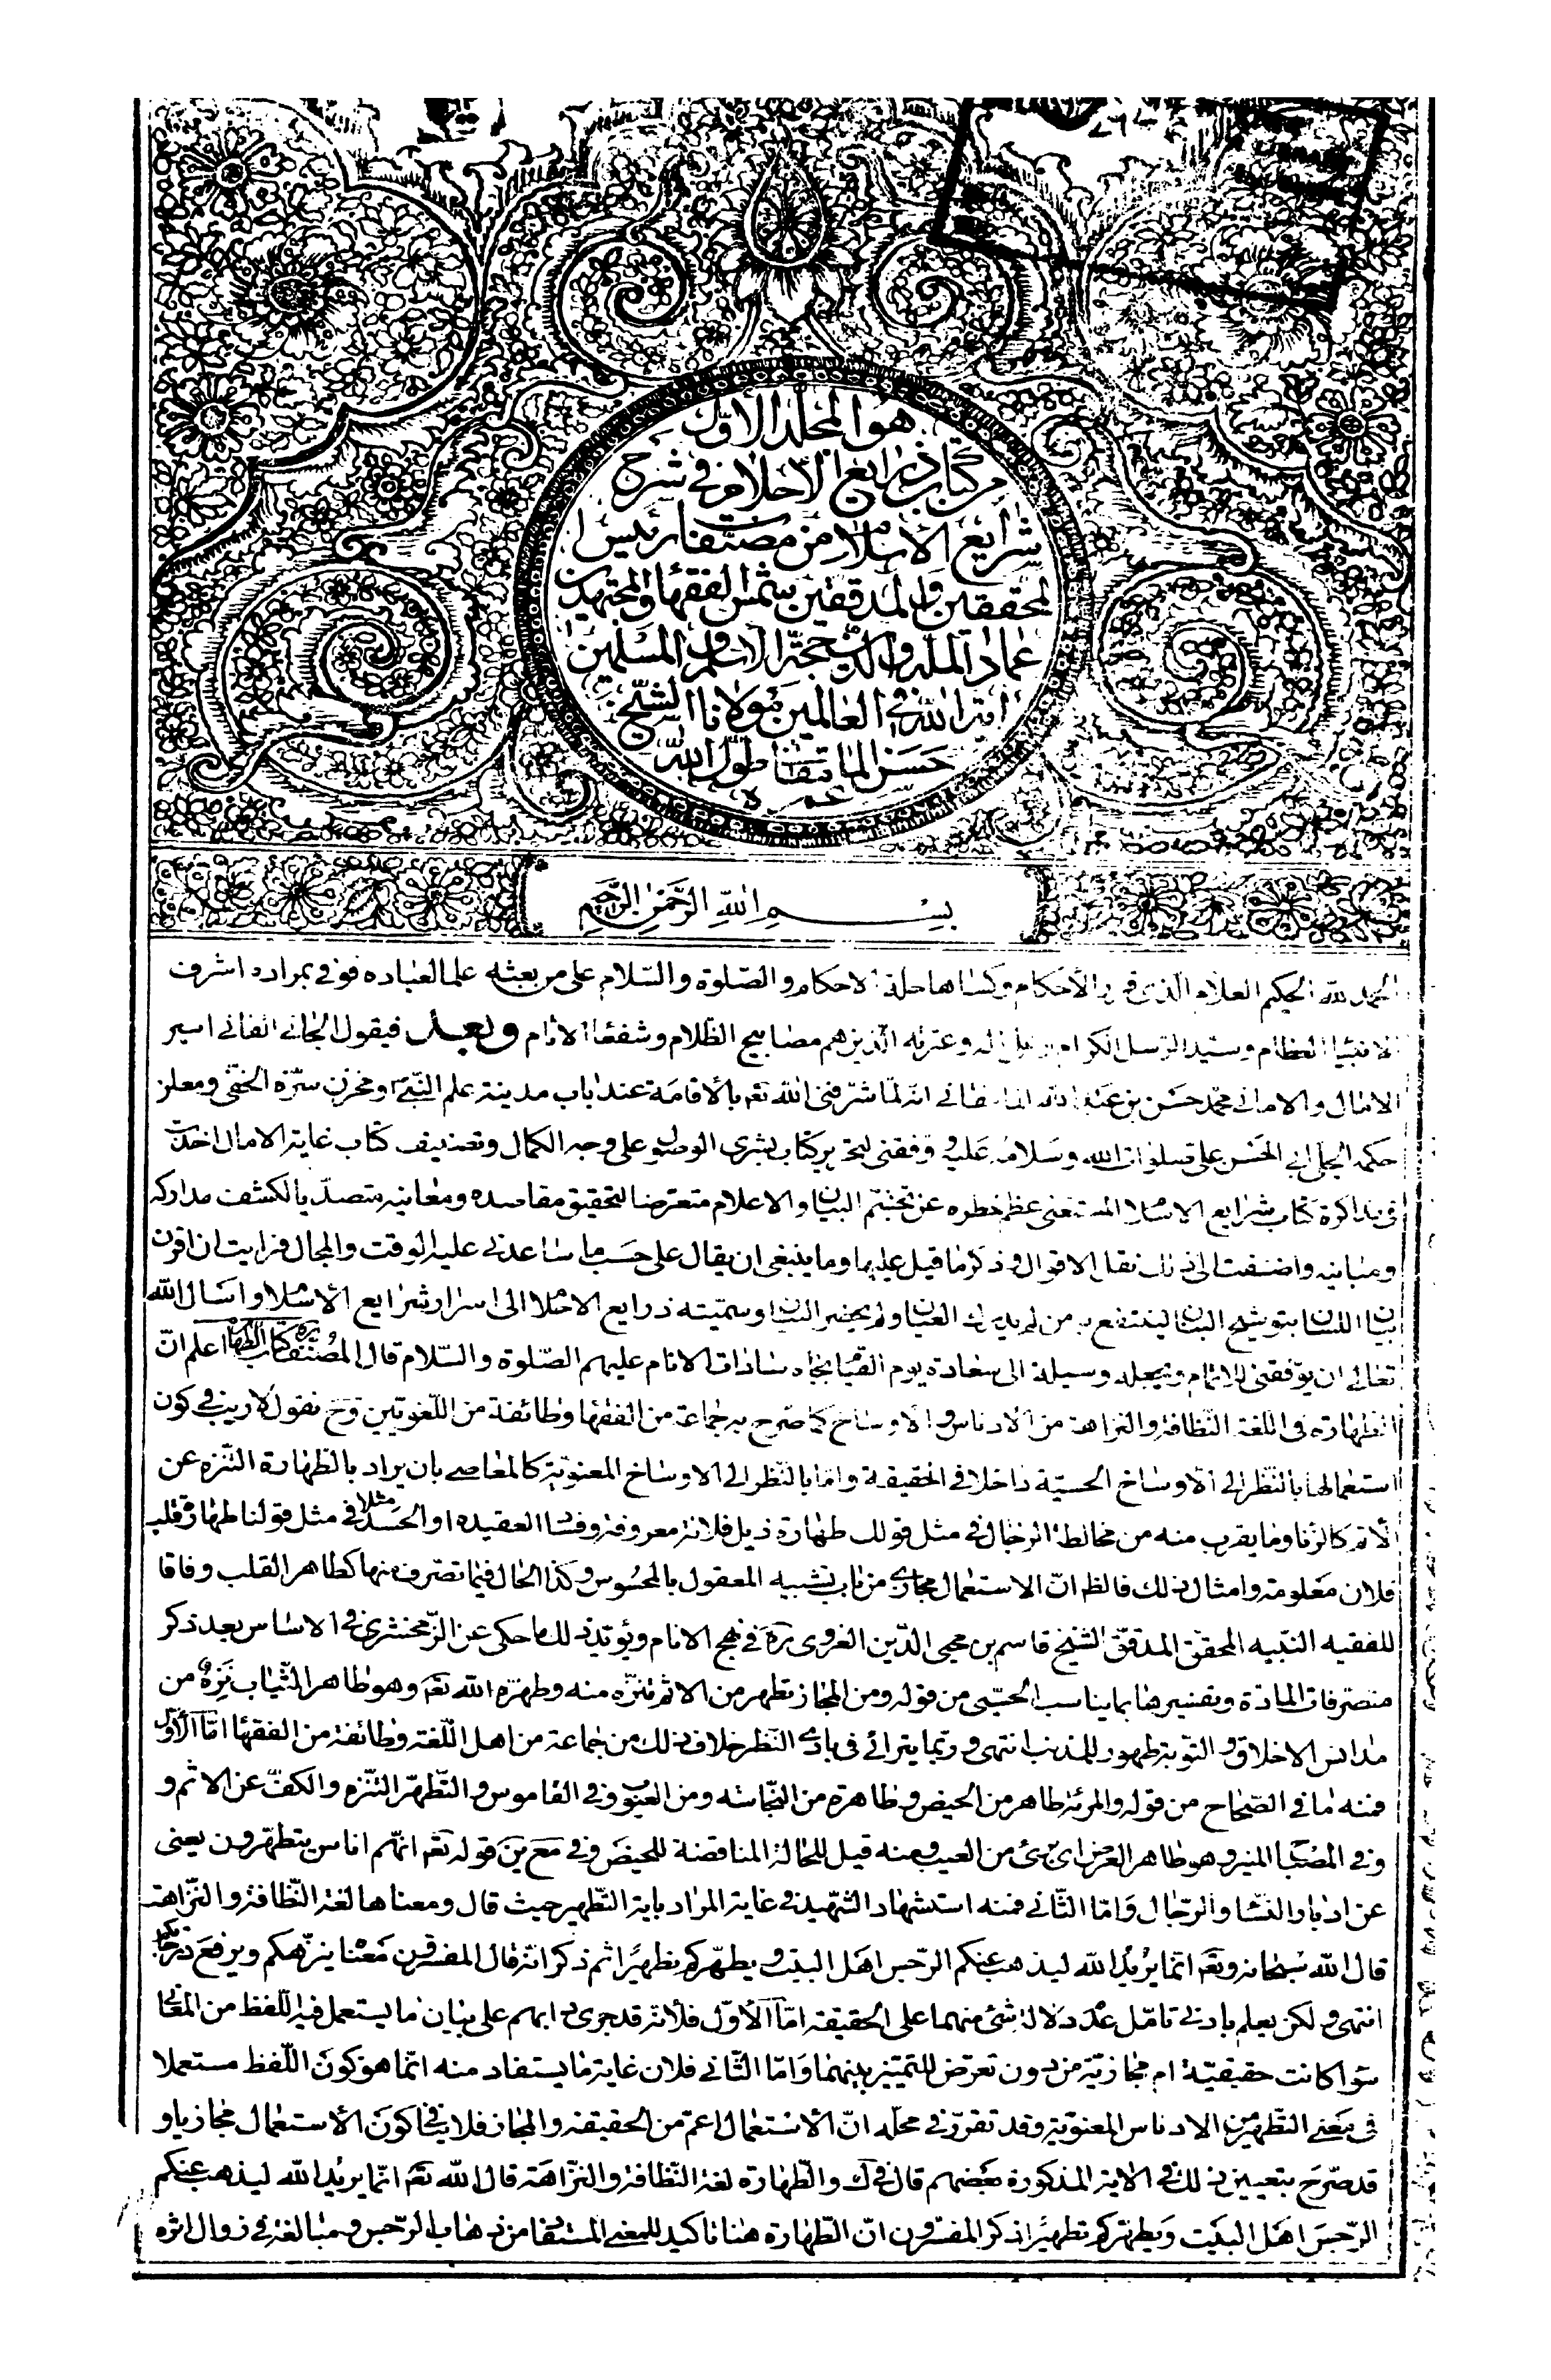 هو المجلد الاول
من كتاب ذرايع الاحلام في شرح
شرايع الاسلام من مصنفات رئيس
المحققين والمدققين شمس الفقهاء والمجتهدين
عماد الملة والدين حجة الاسلام والمسلمين
اية الله في العالمين مولانا الشيخ
حسن المامقانى طول الله
عمره
بسم الله الرحمن الرحيم
الحمد لله الحكيم العلام الذى الأحكام وكساها حلة الاحكام والصلوة والسلام على من بعثه علما لعباده فوفى بمراده اشرف
الانبياء العظام وسيد الرسل الكرام وعترته الذين هم مصابيح الظلام وشفعاء الانام وبعد فيقول الجاني الفاني اسير
الامال والاماني محمد حسن بن عبد الله المامقاني انه لما شرفنى الله تعم بالأقامة عند باب مدينة علم النبي ومخزن سره الخفى ومعلن
حكمه الجلى ابي الحسن على صلوات الله وسلامه عليه ووفقنى لتحرير كتاب بشرى الوصول على وجه الكمال وتصنيف كتاب غاية الامال اخذت
في مذاكرة كتاب شرايع الاسلام المستغنى عظم خطره عن تجشم البيان والاعلام متعرضا لتحقيق مقاصده ومعانيه متصديا لكشف مداركه
ومبانيه واضفت الى ذلك نقل الاقوال وذكر ما قيل عليها وما ينبغى ان يقال على حسب ما ساعدنى عليه الوقت والمجال فرايت ان اقرن
بيان اللسان بتوشيح البنان لينتفع به من لم يدرك العيان ولم يحضر البيان وسميته ذرايع الاحلام الى اسرار شرايع الأسلام واسال الله
تعالى ان يوفقنى للاتمام ويجعله وسيلة الى سعادة يوم القيام بجاه سادات الانام عليهم الصلوة والسلام قال المصنف ره كتاب الطهارة اعلم ان
الطهارة في اللغة النظافة والنزاهة من الادناس والاوساخ كما صرح به جماعة من الفقهاء وطائفة من اللغويين وح نقول لا ريب في كون
استعمالها بالنظر الى الاوساخ الحسية داخلا في الحقيقة واما بالنظر الى الاوساخ المعنوية كالمعاصي بان يراد بالطهارة التنزه عن
الأثم كالزنا وما يقرب منه من مخالطة الرجال في مثل قولك طهارة ذيل فلانة معروفة وفساد العقيده او الحسد مثلا في مثل قولنا طهارة قلب
فلان معلومة وامثال ذلك فالظ ان الاستعمال مجازي من باب تشبيه المعقول بالمحسوس وكذا الحال فيما تصرف منها كطاهر القلب وفاقا
للفقيه النبيه المحقق المدقق الشيخ قاسم بن محيى الدين الغروى ره في نهج الانام ويؤيد ذلك ما حكى عن الزمخشرى في الاساس بعد ذكر
متصرفات المادة وتفسيرها بما يناسب الحسي من قوله ومن المجاز تطهر من الاثم تنزه منه وطهره الله تعم وهو طاهر الثياب نزه من
مدانس الاخلاق والتوبة طهور للمذنب انتهى وربما يترائى في بادي النظر خلاف ذلك من جماعة من اهل اللغة وطائفة من الفقهاء اما الأول
فمنه ما في الصحاح من قوله والمرئة طاهر من الحيض وطاهرة من النجاسة ومن العيوب وفي القاموس والتطهر التنزه والكف عن الاثم و
وفي المصباح المنير وهو طاهر العرض اى برئ من العيب ومنه قيل للحالة المناقضة للحيض وفي مع ين قوله تعم انهم اناس يتطهرون يعنى
عن ادبار النساء والرجال واما الثاني فمنه استشهاد الشهيد في غاية المراد باية التطهير حيث قال ومعناها لغة النظافة والنزاهة
قال الله سبحانه وتعم انما يريد الله ليذهب عنكم الرجس اهل البيت ويطهركم تطهيرا ثم ذكر انه قال المفسرون معناه ينزهكم ويرفع درجاتكم
انتهى ولكن يعلم بادنى تامل عدم دلالة شئ منهما على الحقيقة اما الأول فلأنه قد جرى دابهم على بيان ما يستعمل فيه اللفظ من المعاني
سواء كانت حقيقية ام مجازية من دون تعرض للتمييز بينهما واما الثاني فلان غاية ما يستفاد منه انما هو كون اللفظ مستعملا
في معنى التطهير من الادناس المعنوية وقد تقرر في محله ان الأستعمال اعم من الحقيقة والمجاز فلا ينافي كون الأستعمال مجازيا و
قد صرح بتعيين ذلك في الاية المذكورة بعضهم قال في ك والطهارة لغة النظافة والنزاهة قال الله تعم انما يريد الله ليذهب عنكم
الرجس اهل البيت ويطهركم تطهيرا ذكر المفسرون ان الطهارة هنا تاكيد للمعنى المستفاد من ذهاب الرجس ومبالغة في زوال اثره